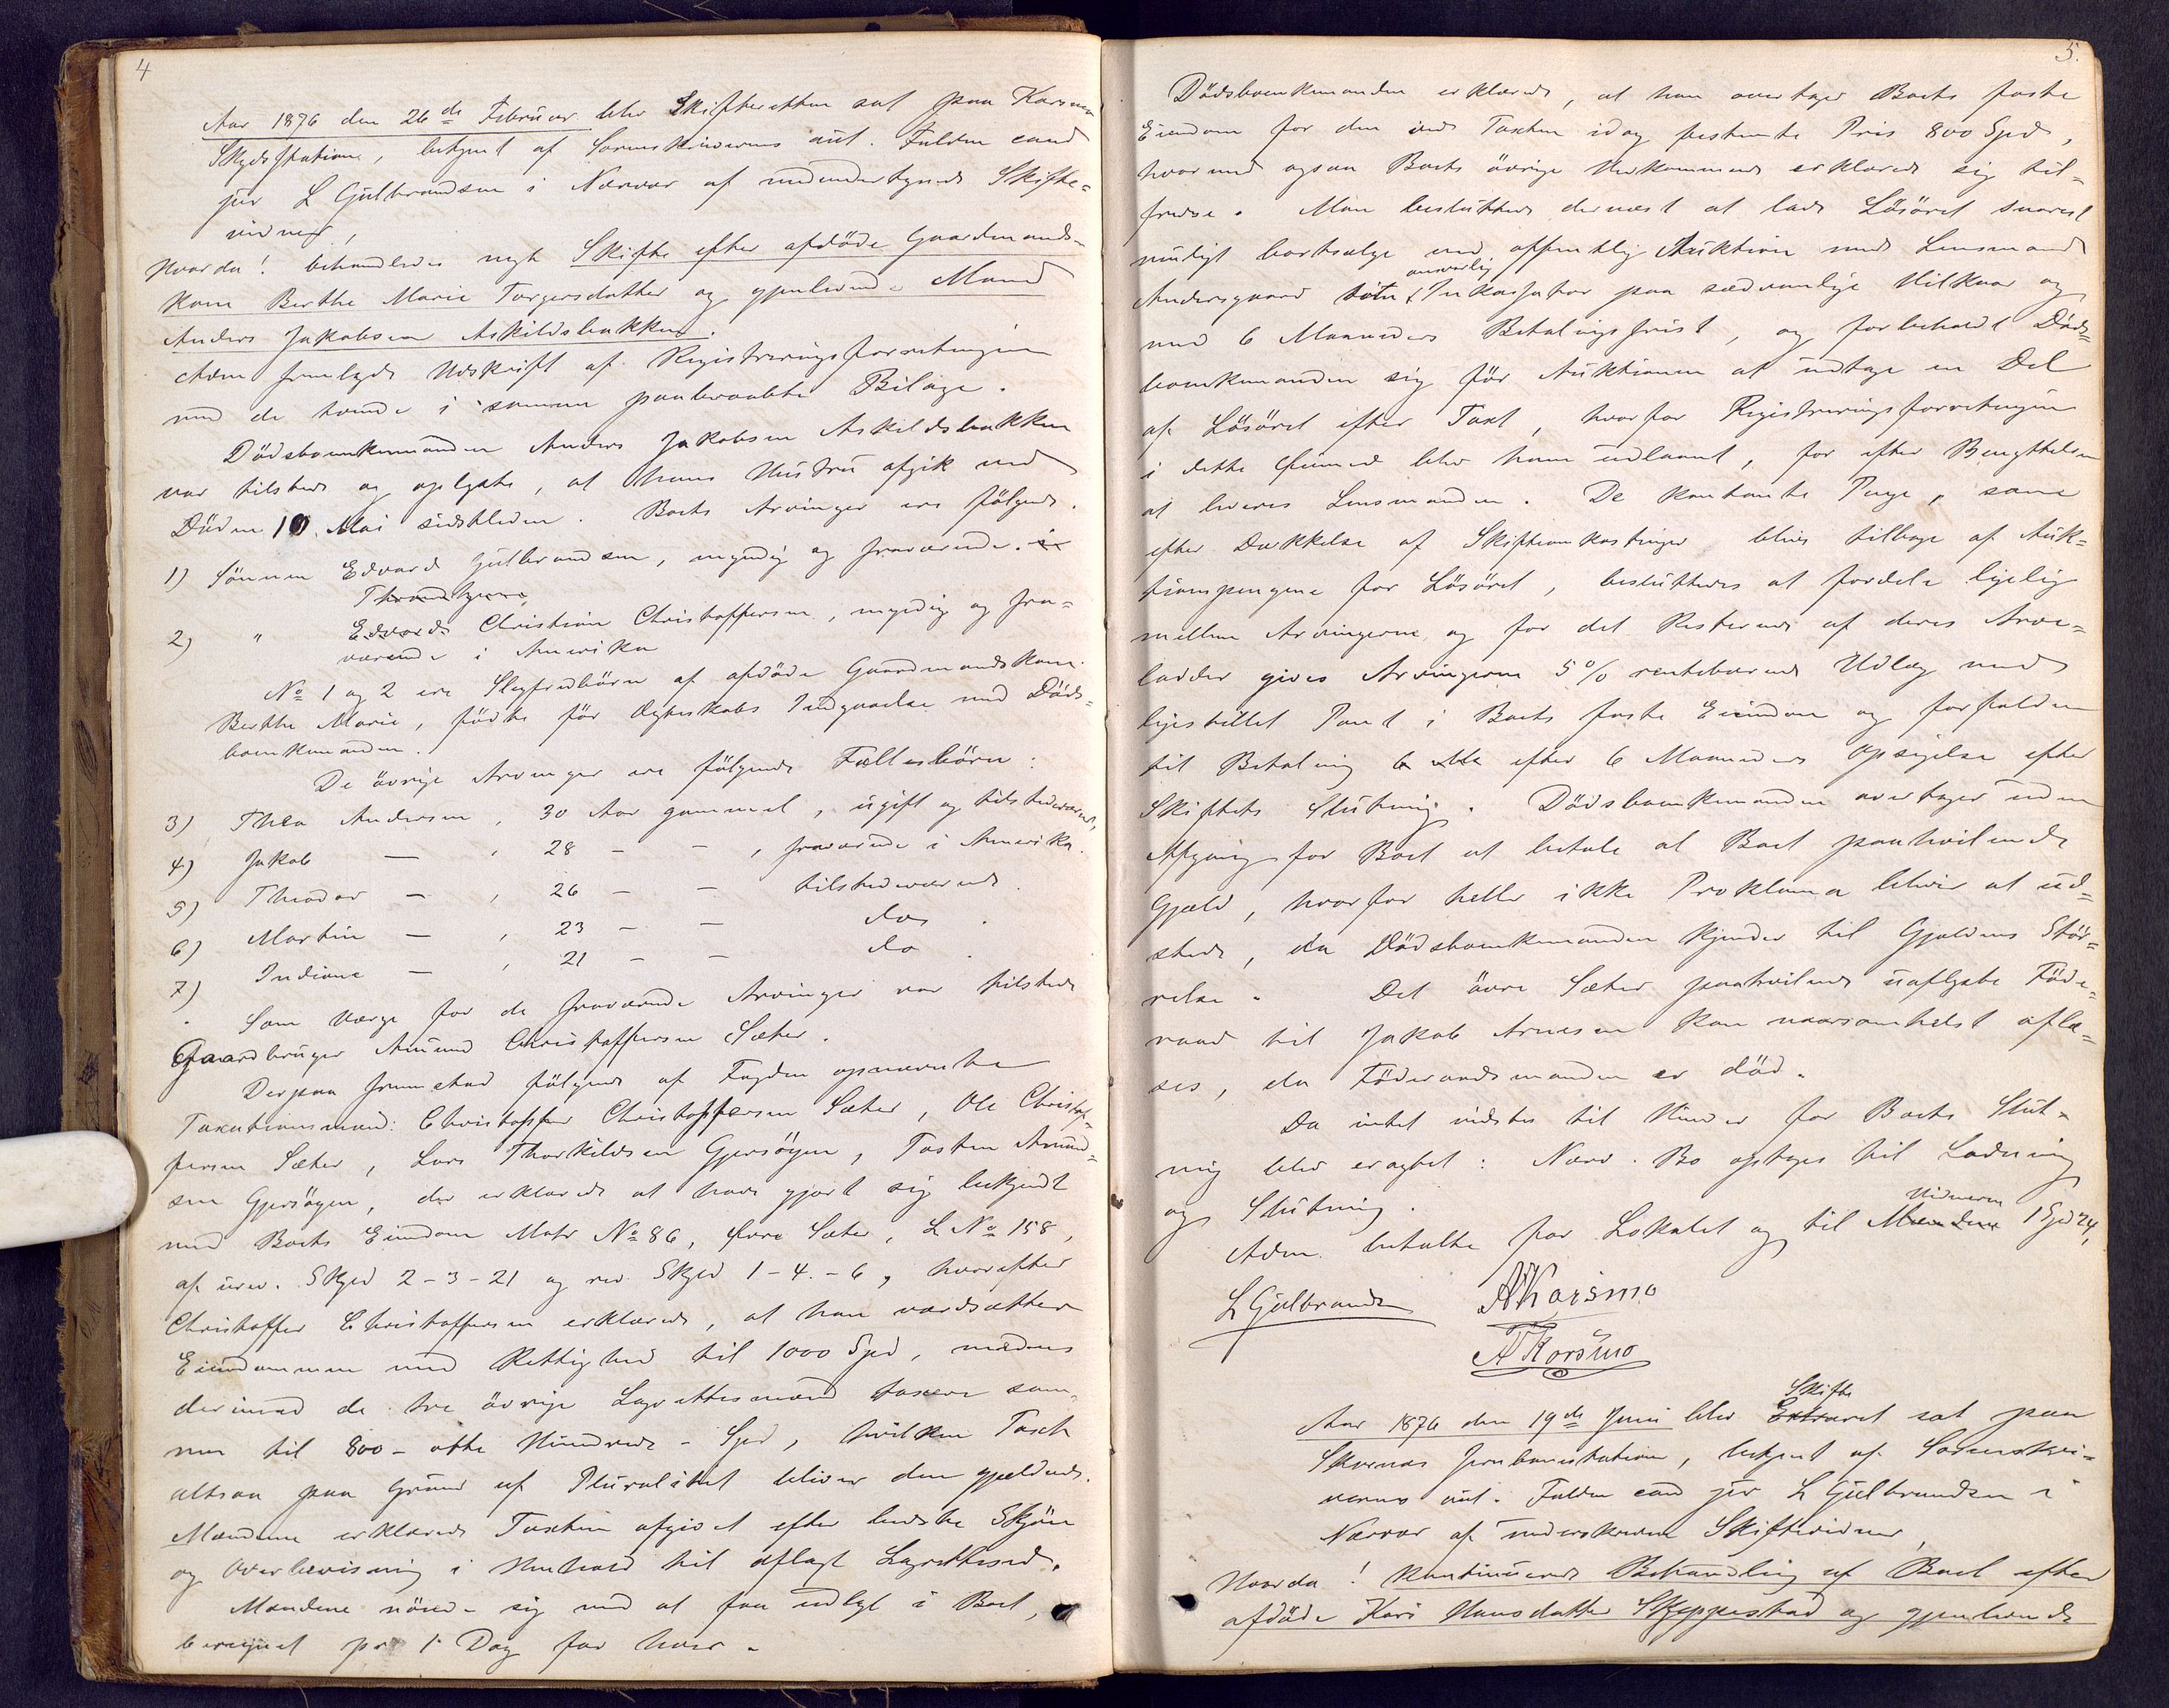 4
Aar 1876 den 26de Februar blev Skifteretten sat paa Korsmo
Skydsstation, betjent af Sorenskriverens aut. Fuldm cand
jur L Gulbrandsen i Nærvær af medundertegnede Skifte-
vidner,
Hvorda! behandledes nyt Skifte efter afdöde Gaardmands-
kone Berthe Marie Torgersdatter og gjenlevende Mand
Anders Jakobsen Askildsbakken.
Adm fremlagde Udskrift af Registreringsforretningen
med de tvende i samme paaberaabte Bilage.
Dödsboenkemanden Anders Jakobsen Askildsbakken
var tilstede og oplyste, at hans Hustru afgik ved
Döden 10. Mai sidstleden. Boets Arvinger ere fölgende.
1) Sönnen Edvard Gulbrandsen, myndig og fraværende. i
Throndhjem,
2) " Edvard Christian Christoffersen, myndig og fra-
værende i Amerika
No 1 og 2 ere Slegfredbörn af afdöde Gaardmandskone
Berthe Marie, födte för Ægteskabs Indgaaelse med Döds-
boenkemanden.
De övrige Arvinger ere fölgende Fællesbörn:
3) Thea Andersen, 30 Aar gammel, ugift og tilstedeværende,
4) Jakob — , 28 - - , fraværende i Amerika.
5) Theodor — , 26 - - tilstedeværende.
6) Martin — , 23 - - do .
7) Indiane — , 21 - - do .
Som Værge for de fraværende Arvinger var tilstede
Gaardbruger Amund Christoffersen Sæter.
Derpaa fremstod fölgende af Fogden opnævnte
Taxationsmænd: Christoffer Christoffersen Sæter, Ole Christof-
fersen Sæter, Lars Thorkildsen Gjersöyen, Tosten Amund-
sen Gjersöyen, der erklærede at have gjort sig bekjendt
med Boets Eiendom Matr No 86, övre Sæter, L No 158,
af urev. Skyld 2-3-21 og rev Skyld 1-4-6, hvorefter
Christoffer Christoffersen erklærede, at han værdsætter
Eiendommen med Rettighed til 1000 Spd, medens
derimod de tre övrige Lagrettesmænd taxere sam-
me til 800 - otte Hundrede - Spd, hvilken Taxt
altsaa paa Grund af Pluralitet bliver den gjeldende.
Mændene erklærede Taxten afgivet efter bedste Skjön
og Overbevisning i Henhold til aflagt Lagrettesed.
Mændene nöiede sig med at faa udlagt i Boet,
beregnet pr 1 Dag for hver.
5.
Dödsboenkemanden erklærede, at han overtager Boets faste
Eiendom for den ved Taxten idag bestemte Pris 800 Spd,
hvormed ogsaa Boets övrige Vedkommende erklærede sig til-
fredse. Man besluttede dernæst at lade Lösöret snarest
muligt bortsælge ved offentlig Auktion med Lensmand
ansvarlig
Andersgaard som Inkassator paa sædvanlige Vilkaar og
med 6 Maaneders Betalingsfrist, og forbeholdt Döds-
boenkemanden sig för Auktionen at udtage en Del
af Lösöret efter Taxt, hvorfor Registreringsforretningen
i dette Öiemed blev ham udlaant, for efter Benyttelsen
at leveres Lensmanden. De kontante Penge, som
efter Dækkelse af Skifteomkostninger blive tilbage af Auk-
tionspengene for Lösöret, besluttedes at fordele ligelig
mellem Arvingerne, og for det Resterende af deres Arve-
lodder gives Arvingerne 5% rentebærende Udlæg med
ligestillet Pant i Boets faste Eiendom og forfalden
til Betaling 6 Ma efter 6 Maaneders Opsigelse efter
Skiftets Slutning. Dödsboenkemanden overtager uden
Afgang for Boet at betale al Boet paahvilende
Gjæld, hvorfor heller ikke Proklama bliver at ud-
stede, da Dödsboenkemanden kjender til Gjældens Stör-
relse. Det övre Sæter paahvilende uaflyste Föde-
raad til Jakob Arnesen kan naarsomhelst aflæ-
ses, da Föderaadsmanden er död.
Da intet vidstes til Hinder for Boets Slut-
ning blev eragtet: Nærv. Bo optages til Lodning
og Slutning.
Vidnerne
Adm. betalte for Lokalet og til Mændene 1 Spd 24,
L Gulbrandsen AKorsmo
A Korsmo
Skifte
Aar 1876 den 19de Juni blev Extraret sat paa
Skarnes Jernbanestation, betjent af Sorenskri-
verens aut. Fuldm cand jur L Gulbrandsen i
Nærvær af underskrevne Skiftevidner,
Hvorda! Kontinuerede Behandling af Boet efter
afdöde Kari Hansdatter Skyppestad og gjenlevende